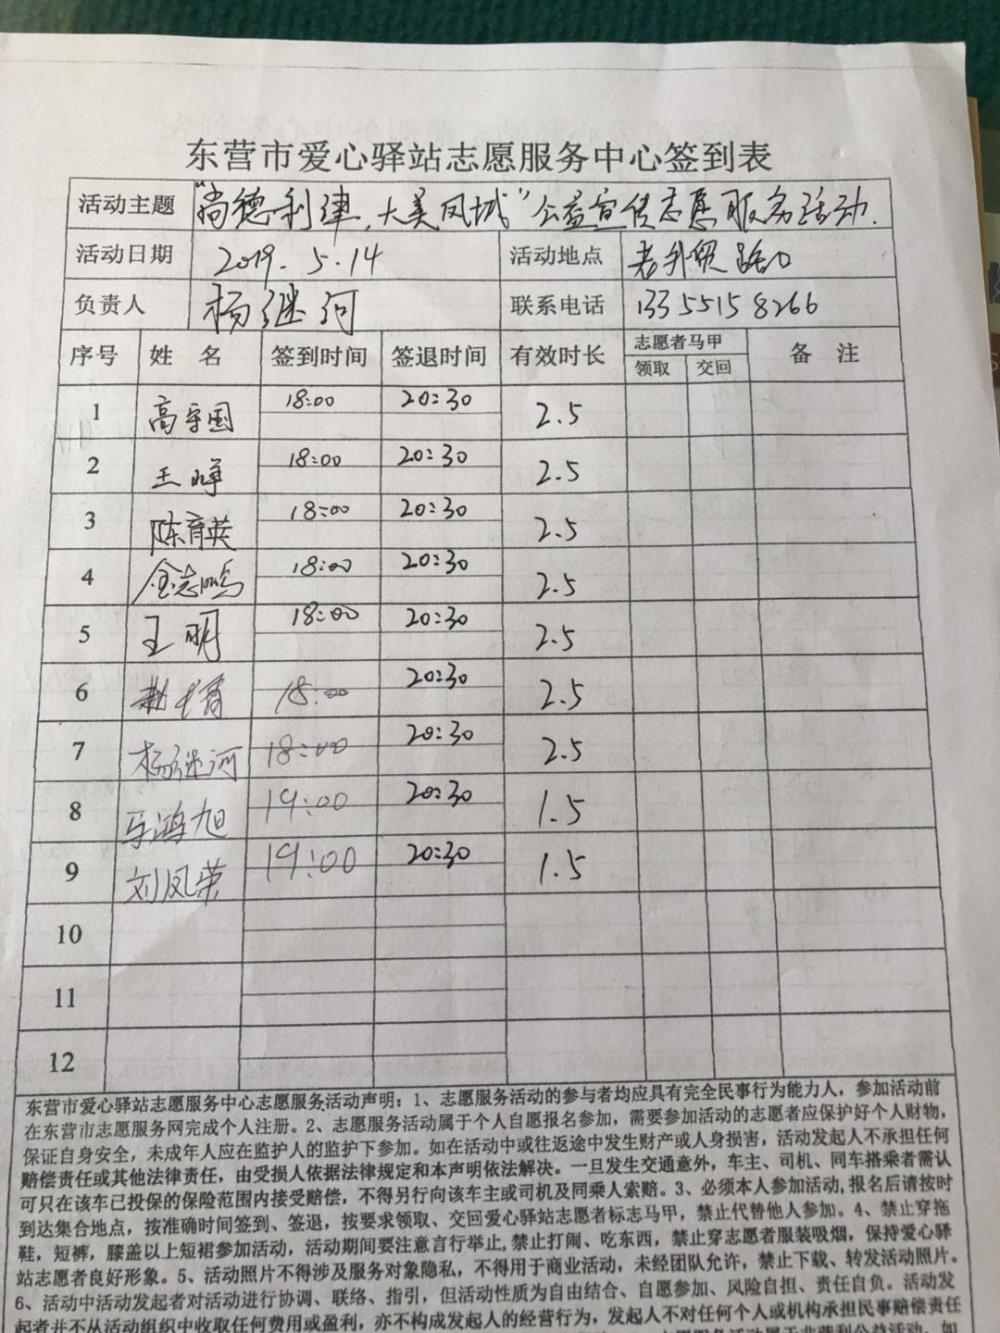 东营市爱心驿站志愿服务中心签到表
活动主题 “尚德利津,大美凤城”公益宣传志愿服务活动.
活动日期 2019.5.14 活动地点 老外贸路口
负责人 杨继河 联系电话 133 5515 8266
序号 姓名 签到时间 签退时间 有效时长 志愿者马甲 备注
领取 交回
1 高守国 18:00 20:30 2.5
2 王峥 18:00 20:30 2.5
3 陈育英 18:00 20:30 2.5
4 金志鸣 18:00 20:30 2.5
5 王明 18:00 20:30 2.5
6 18:00 20:30 2.5
7 杨继河 18:00 20:30 2.5
8 马鸿旭 19:00 20:30 1.5
9 刘凤荣 19:00 20:30 1.5
10
11
12
东营市爱心驿站志愿服务中心志愿服务活动声明:1、志愿服务活动的参与者均应具有完全民事行为能力人,参加活动前
在东营市志愿服务网完成个人注册。2、志愿服务活动属于个人自愿报名参加,需要参加活动的志愿者应保护好个人财物,
保证自身安全,未成年人应在监护人的监护下参加。如在活动中或往返途中发生财产或人身损害,活动发起人不承担任何
赔偿责任或其他法律责任,由受损人依据法律规定和本声明依法解决。一旦发生交通意外,车主、司机、同车搭乘者需认
可只在该车已投保的保险范围内接受赔偿,不得另行向该车主或司机及同乘人索赔。3、必须本人参加活动,报名后请按时
到达集合地点,按准确时间签到、签退,按要求领取、交回爱心驿站志愿者标志马甲,禁止代替他人参加。4、禁止穿拖
鞋,短裤,膝盖以上短裙参加活动,活动期间要注意言行举止,禁止打闹、吃东西,禁止穿志愿者服装吸烟,保持爱心驿
站志愿者良好形象。5、活动照片不得涉及服务对象隐私,不得用于商业活动,未经团队允许,禁止下载、转发活动照片。
6、活动中活动发起者对活动进行协调、联络、指引,但活动性质为自由结合、自愿参加、风险自担、责任自负。活动发
起者并不从活动组织中收取任何费用或盈利,亦不构成发起人的经营行为,发起人不对任何个人或机构承担民事赔偿责任